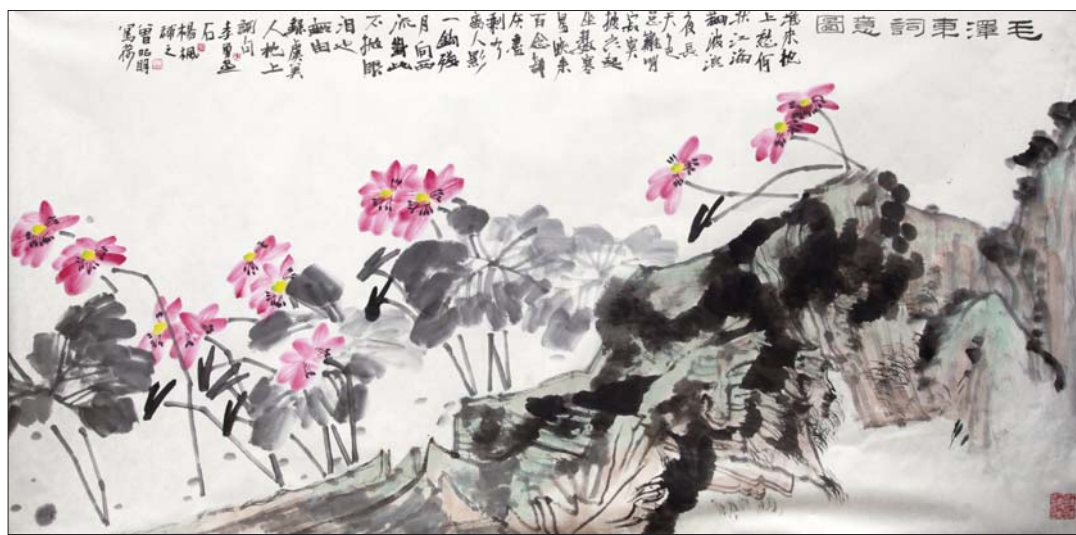 毛澤東詞意圖
堆來枕
上愁何
狀江海
翻波浪
夜長
天色
總難明
寂寞
披衣起
坐數寒
星曉來
百念都
灰盡
剩有
離人影
一鉤殘
月向西
流對此
不抛眼
淚也
無由
錄虞美
人枕上
詞句
石
楊楓
補之
寫荷